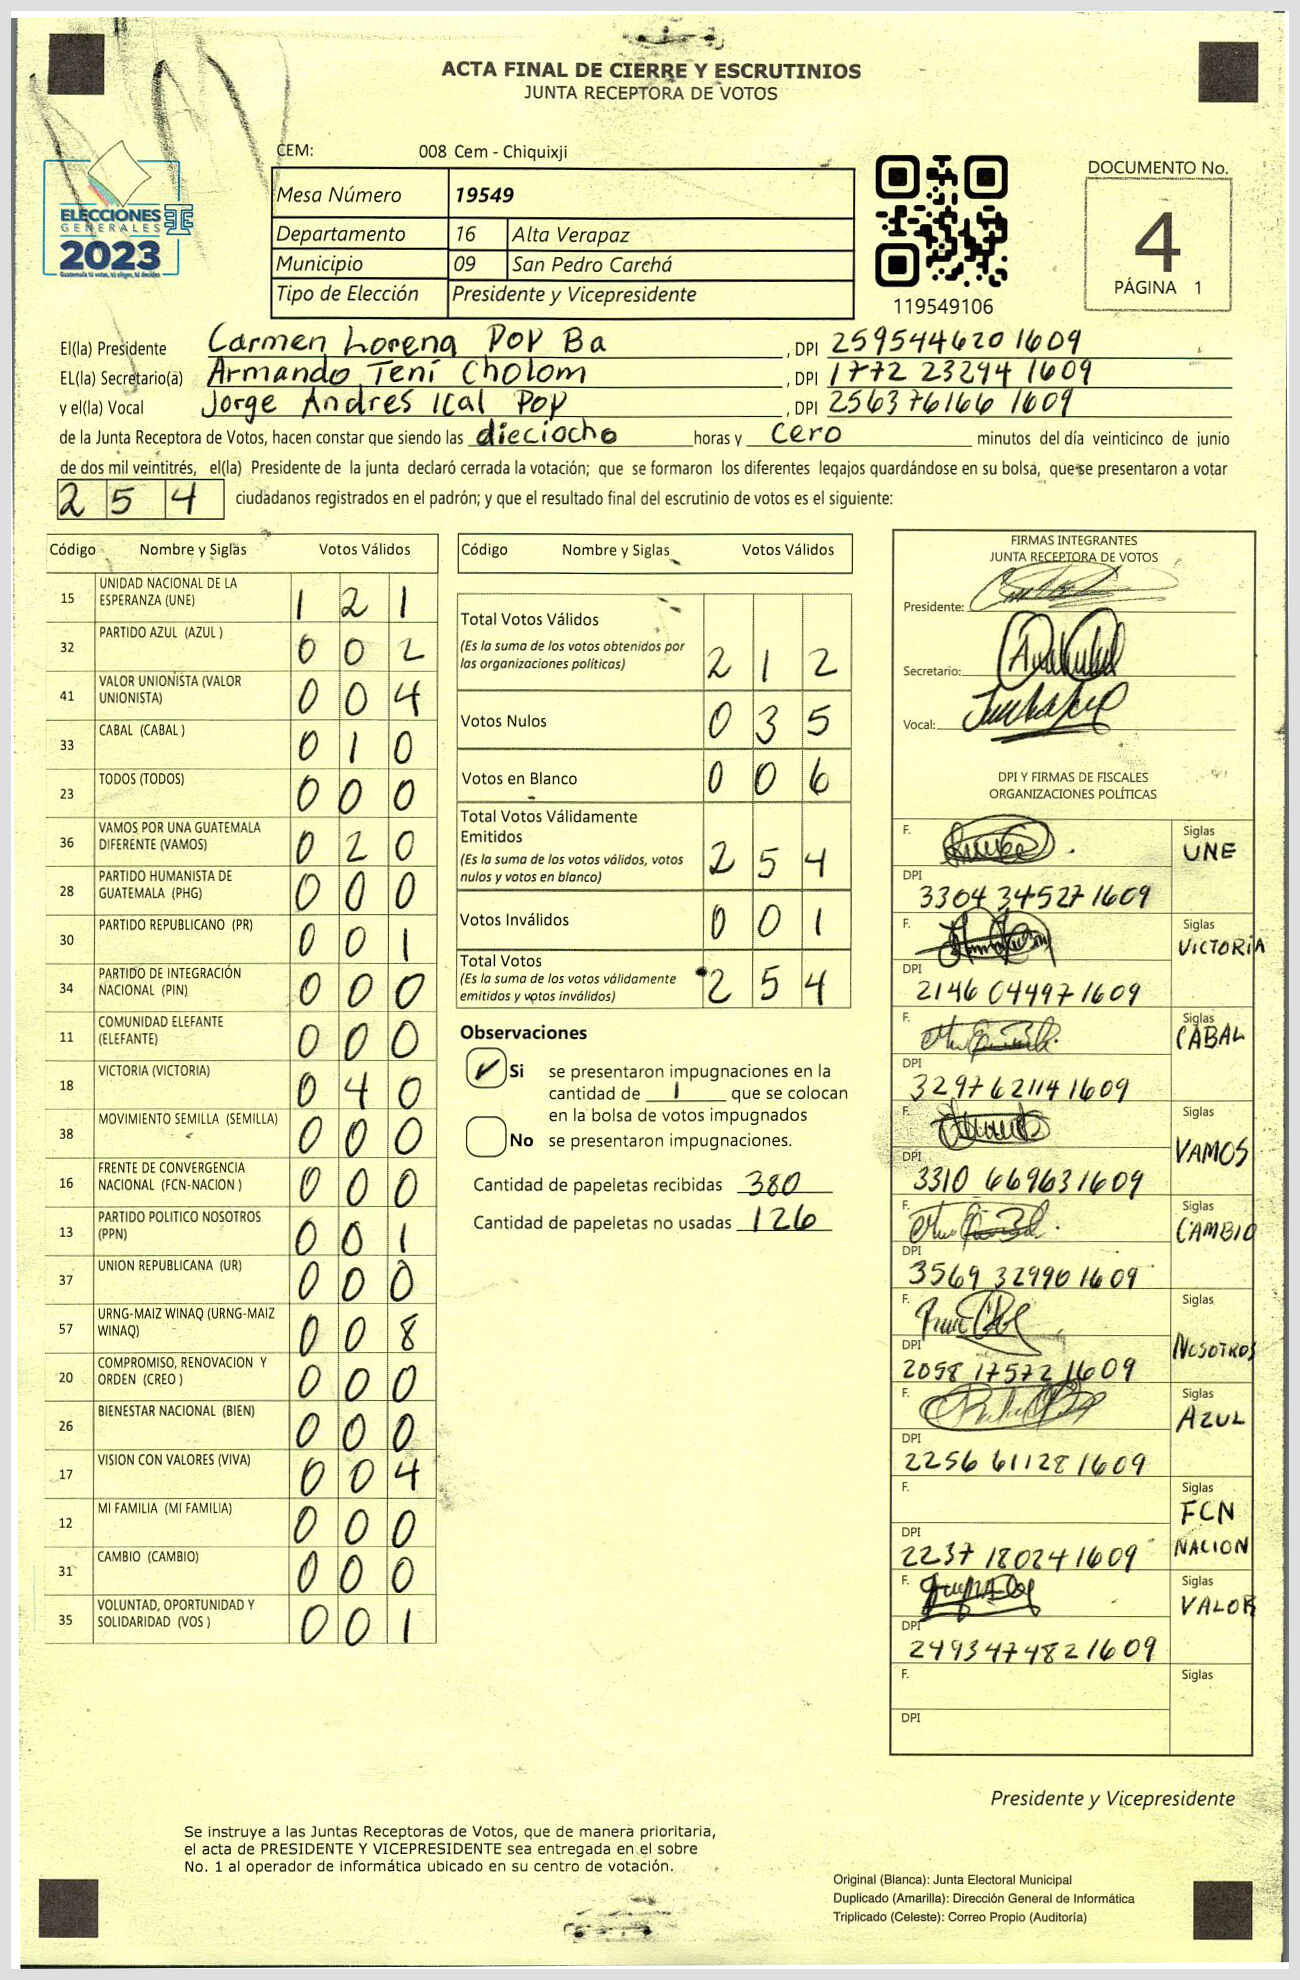 ACTA FINAL DE CIERRE Y ESCRUTINIOS
JUNTA RECEPTORA DE VOTOS
CEM: 008 Cem - Chiquixji
ELECCIONES
GENERALES
2023
Guatemala tú votas, tú eliges, tú decides
Mesa Número 19549
Departamento 16 Alta Verapaz
Municipio 09 San Pedro Carchá
Tipo de Elección Presidente y Vicepresidente
119549106
DOCUMENTO No.
4
PÁGINA 1
El(la) Presidente Carmen Lorena Pop Ba , DPI 259544620 1609
EL(la) Secretario(a) Armando Tení Cholom , DPI 1772 23294 1609
y el(la) Vocal Jorge Andres Ical Pop , DPI 256376166 1609
de la Junta Receptora de Votos, hacen constar que siendo las dieciocho horas y cero minutos del día veinticinco de junio
de dos mil veintitrés, el(la) Presidente de la junta declaró cerrada la votación; que se formaron los diferentes legajos guardándose en su bolsa, que se presentaron a votar
254 ciudadanos registrados en el padrón; y que el resultado final del escrutinio de votos es el siguiente:
Código Nombre y Siglas Votos Válidos
15 UNIDAD NACIONAL DE LA ESPERANZA (UNE) 1 2 1
32 PARTIDO AZUL (AZUL ) 0 0 2
41 VALOR UNIONISTA (VALOR UNIONISTA) 0 0 4
33 CABAL (CABAL ) 0 1 0
23 TODOS (TODOS) 0 0 0
36 VAMOS POR UNA GUATEMALA DIFERENTE (VAMOS) 0 2 0
28 PARTIDO HUMANISTA DE GUATEMALA (PHG) 0 0 0
30 PARTIDO REPUBLICANO (PR) 0 0 1
34 PARTIDO DE INTEGRACIÓN NACIONAL (PIN) 0 0 0
11 COMUNIDAD ELEFANTE (ELEFANTE) 0 0 0
18 VICTORIA (VICTORIA) 0 4 0
38 MOVIMIENTO SEMILLA (SEMILLA) 0 0 0
16 FRENTE DE CONVERGENCIA NACIONAL (FCN-NACION ) 0 0 0
13 PARTIDO POLITICO NOSOTROS (PPN) 0 0 1
37 UNION REPUBLICANA (UR) 0 0 0
57 URNG-MAIZ WINAQ (URNG-MAIZ WINAQ) 0 0 8
20 COMPROMISO, RENOVACION Y ORDEN (CREO ) 0 0 0
26 BIENESTAR NACIONAL (BIEN) 0 0 0
17 VISION CON VALORES (VIVA) 0 0 4
12 MI FAMILIA (MI FAMILIA) 0 0 0
31 CAMBIO (CAMBIO) 0 0 0
35 VOLUNTAD, OPORTUNIDAD Y SOLIDARIDAD (VOS ) 0 0 1
Código Nombre y Siglas Votos Válidos
Total Votos Válidos
(Es la suma de los votos obtenidos por
las organizaciones políticas) 2 1 2
Votos Nulos 0 3 5
Votos en Blanco 0 0 6
Total Votos Válidamente
Emitidos
(Es la suma de los votos válidos, votos
nulos y votos en blanco) 2 5 4
Votos Inválidos 0 0 1
Total Votos
(Es la suma de los votos válidamente
emitidos y votos inválidos) 2 5 4
Observaciones
Si se presentaron impugnaciones en la
cantidad de 1 que se colocan
en la bolsa de votos impugnados
No se presentaron impugnaciones.
Cantidad de papeletas recibidas 380
Cantidad de papeletas no usadas 126
FIRMAS INTEGRANTES
JUNTA RECEPTORA DE VOTOS
Presidente:
Secretario:
Vocal:
DPI Y FIRMAS DE FISCALES
ORGANIZACIONES POLÍTICAS
F. Siglas UNE
DPI 3304 34527 1609
F. Siglas VICTORIA
DPI 2146 04497 1609
F. Siglas CABAL
DPI 3297 62114 1609
F. Siglas VAMOS
DPI 3310 66963 1609
F. Siglas CAMBIO
DPI 3569 32990 1609
F. Siglas NOSOTROS
DPI 2058 17572 1609
F. Siglas AZUL
DPI 2256 61128 1609
F. Siglas FCN NACION
DPI 2237 18024 1609
F. Siglas VALOR
DPI 249347482 1609
F. Siglas
DPI
Presidente y Vicepresidente
Se instruye a las Juntas Receptoras de Votos, que de manera prioritaria,
el acta de PRESIDENTE Y VICEPRESIDENTE sea entregada en el sobre
No. 1 al operador de informática ubicado en su centro de votación.
Original (Blanca): Junta Electoral Municipal
Duplicado (Amarilla): Dirección General de Informática
Triplicado (Celeste): Correo Propio (Auditoría)